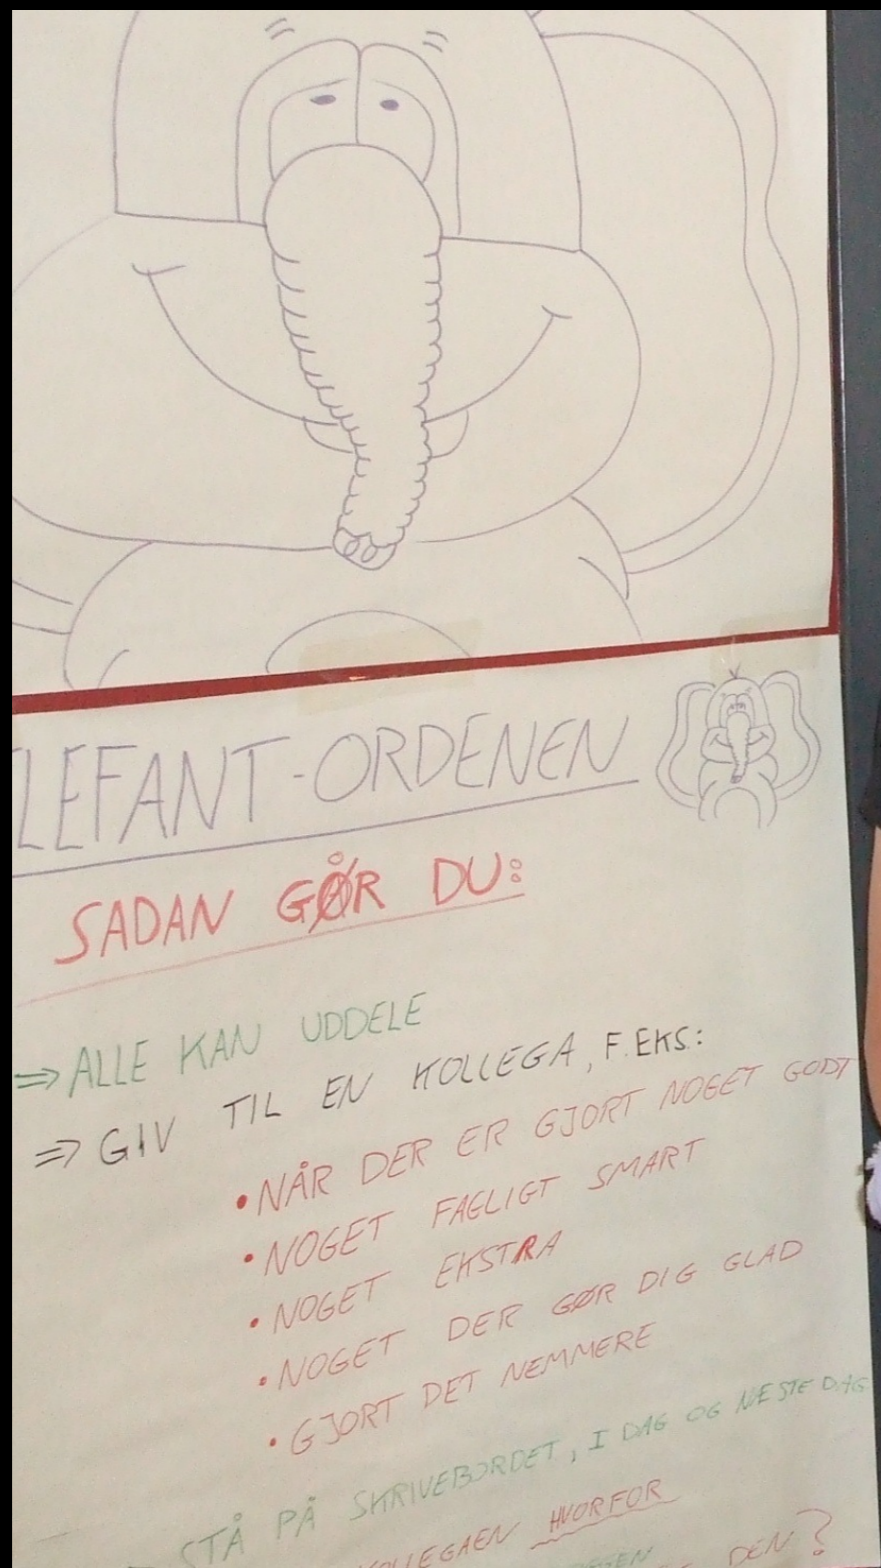 LEFANT-ORDENEN
SADAN GØR DU:
⇒ ALLE KAN UDDELE
⇒ GIV TIL EN KOLLEGA, F.EKS.:
• NÅR DER ER GJORT NOGET GODT
• NOGET FAGLIGT SMART
• NOGET EKSTRA
• NOGET DER GØR DIG GLAD
• GJORT DET NEMMERE
STÅ PÅ SKRIVEBORDET, I DAG OG NESTE DAG
KOLLEGAEN HVORFOR
DEN?